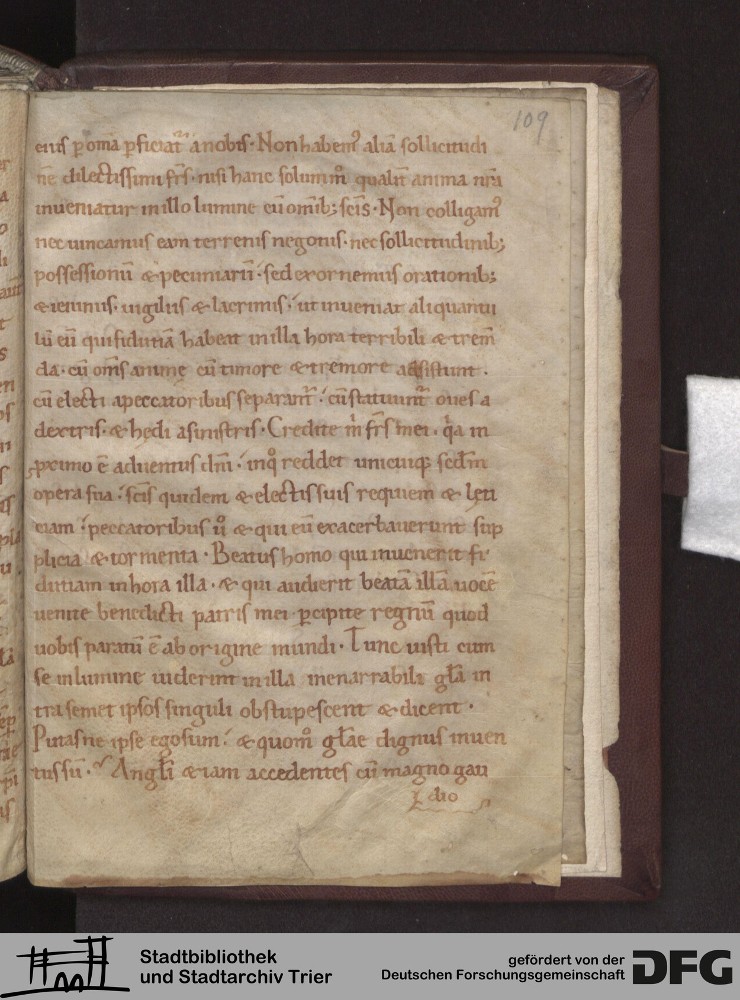 109
eius ꝑ om̄a ꝑficiat᷑ a nobis. Non habem᷒ aliā sollicitudi
nē dilectissimi frs̄. nisi hanc solum̄m qualit̄ anima nr̄a
inueniatur in illo lumine cū om̄ib; sc̄is. Non colligam᷒
nec uinciamus eam terrenis negotiis. nec sollicitudinib;
possessionū & pecuniarū. sed exornemus orationib;
& ieiuniis. uigiliis & lacrimis. ut inueniat aliquantu
lū eū qui fidutiā habeat in illa hora terribili & trem̄
da. cū om̄s animę cū timore & tremore assistunt.
cū electi a peccatoribus separant᷑. cū statuunt᷑ oues a
dextris. & hędi a sinistris. Credite m̄ frs̄ mei. qa in
proximo ē aduentus dn̄i. in q̊ reddet unicuiq; scd̄m
opera sua. sc̄is quidem & electis suis requiem & lęti
ciam. peccatoribus ů & qui eū exacerbauerunt sup
plicia & tormenta. Beatus homo qui inuenerit fi
dutiam in hora illa. & qui audierit beatā illā uocē
uenite benedicti patris mei. ꝑcipite regnū quod
uobis paratū ē ab origine mundi. Tunc iusti cum
se in lumine uiderint in illa inenarrabili gl̄a in
tra semet ipsos singuli obstupescent & dicent.
Putasne ipse ego sum. & quom̊ gl̄ae dignus inuen
tus sū. Angl̄i & iam accedentes cū magno gau
dio
Stadtbibliothek
und Stadtarchiv Trier
gefördert von der
Deutschen Forschungsgemeinschaft
DFG